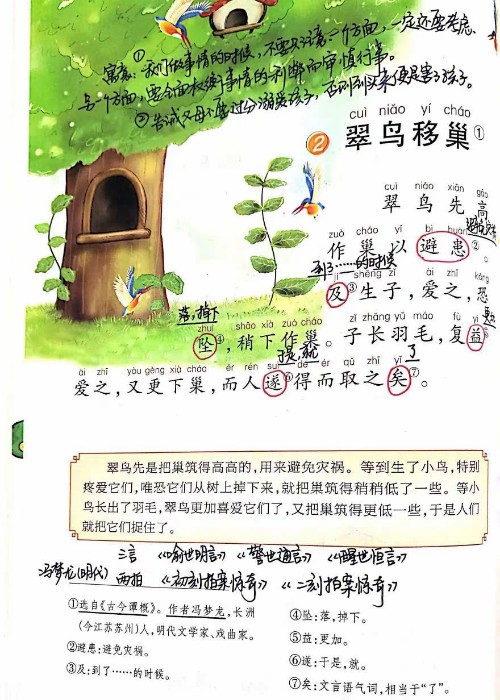 ①
寓意:我们做事情的时候,不要只注意一个方面,一定还要考虑
另一个方面,要全面权衡行事情的利弊而审慎行事。
②告诫父母不要过分溺爱孩子,否则到头来便是害了孩子。
cuì niǎo yí cháo
② 翠鸟移巢①
cuì niǎo xiān gāo
翠鸟先高
zuò cháo yǐ bì huàn
作巢以避患②。
到了……的时候
jí shēng zǐ ài zhī kǒng
及③生子,爱之,恐
落,掉下
zhuì shāo xià zuò cháo zǐ zhǎng yǔ máo fù yì
坠④,稍下作巢。子长羽毛,复益⑤
于是,就
了
ài zhī yòu gèng xià cháo ér rén suì dé ér qǔ zhī yǐ
爱之,又更下巢,而人遂⑥得而取之矣⑦。
翠鸟先是把巢筑得高高的,用来避免灾祸。等到生了小鸟,特别
疼爱它们,唯恐它们从树上掉下来,就把巢筑得稍稍低了一些。等小
鸟长出了羽毛,翠鸟更加喜爱它们了,又把巢筑得更低一些,于是人们
就把它们捉住了。
三言 《喻世明言》《警世通言》《醒世恒言》
冯梦龙(明代) 两拍 《初刻拍案惊奇》《二刻拍案惊奇》
①选自《古今谭概》。作者冯梦龙,长洲
(今江苏苏州)人,明代文学家、戏曲家。
②避患:避免灾祸。
③及:到了……的时候。
④坠:落,掉下。
⑤益:更加。
⑥遂:于是,就。
⑦矣:文言语气词,相当于“了”。